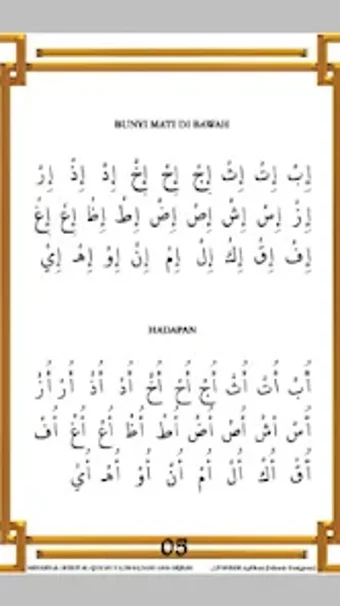 BUNYI MATI DI BAWAH
إِبْ إِتْ إِثْ إِجْ إِحْ إِخْ إِدْ إِذْ إِرْ
إِزْ إِسْ إِشْ إِصْ إِضْ إِطْ إِظْ إِعْ إِغْ
إِفْ إِقْ إِكْ إِلْ إِمْ إِنْ إِوْ إِهْـ إِيْ
HADAPAN
أُبْ أُتْ أُثْ أُجْ أُحْ أُخْ أُدْ أُذْ أُرْ أُزْ
أُسْ أُشْ أُصْ أُضْ أُطْ أُظْ أُعْ أُغْ أُفْ
أُقْ أُكْ أُلْ أُمْ أُنْ أُوْ أُهْـ أُيْ
05